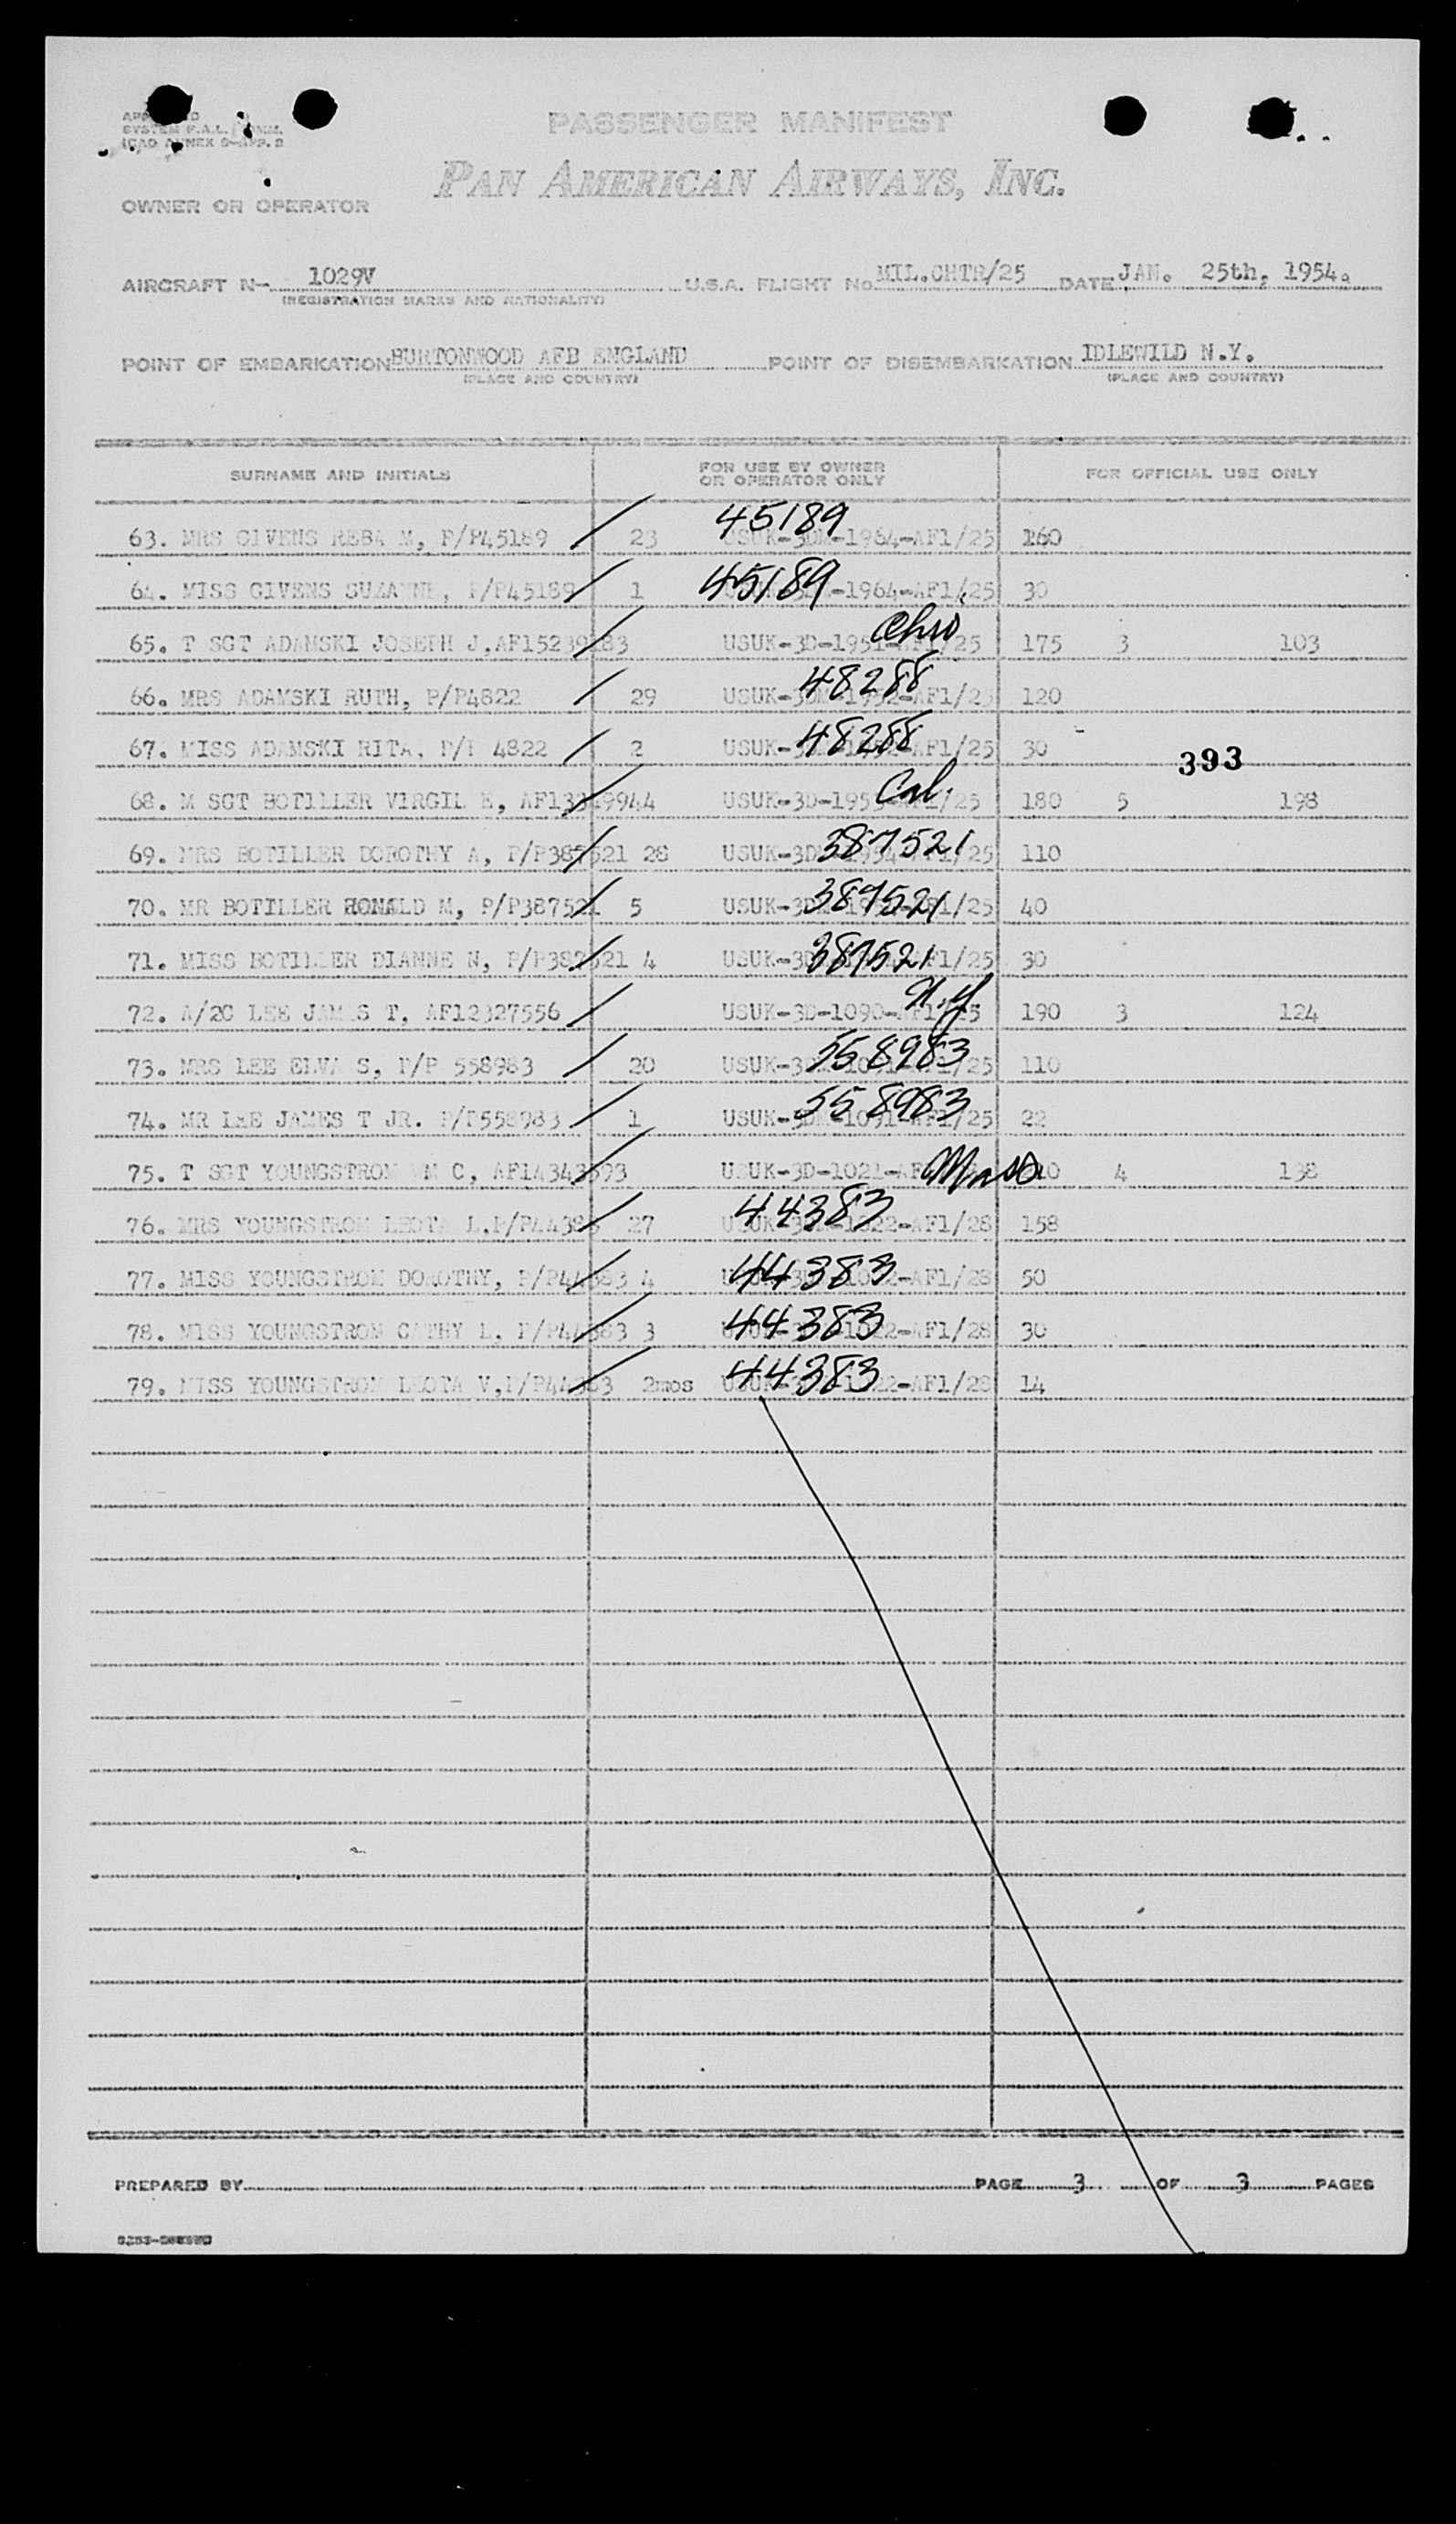 PASSENGER MANIFEST
PAN AMERICAN AIRWAYS, INC.
OWNER OR OPERATOR
AIRCRAFT N- 1029V U.S.A. FLIGHT No MIL.CHTR/25 DATE JAN. 25th, 1954.
(REGISTRATION MARKS AND NATIONALITY)
POINT OF EMBARKATION BURTONWOOD AFB ENGLAND POINT OF DISEMBARKATION IDLEWILD N.Y.
(PLACE AND COUNTRY) (PLACE AND COUNTRY)
SURNAME AND INITIALS FOR USE BY OWNER OR OPERATOR ONLY FOR OFFICIAL USE ONLY
45189
63. MRS GIVENS REBA M, P/P45189 23 -1964-AF1/25 160
64. MISS GIVENS SUZANNE, P/P45189 1 45189 -1964-AF1/25 30
Ohio
65. T SGT ADAMSKI JOSEPH J, USUK-3D-1951- /25 175 3 103
48288
66. MRS ADAMSKI RUTH, P/P4822 29 USUK- -AF1/25 120
67. MISS ADAMSKI RITA. P/P 4822 2 USUK- 48288 AF1/25 30
393
Cal.
68. M SGT BOTILLER VIRGIL E, USUK-3D- /25 180 5 198
69. MRS BOTILLER DOROTHY A, 28 USUK- 387521 /25 110
70. MR BOTILLER RONALD M, P/P387521 5 USUK- 387521 /25 40
71. MISS BOTILLER DIANNE N, P/P387521 4 USUK- 387521 /25 30
N.Y
72. A/2C LEE JAMES T, AF12327556 USUK-3D-1090- 190 3 124
73. MRS LEE ELVA S, P/P 558983 20 USUK- 558983 /25 110
74. MR LEE JAMES T JR. P/P558983 1 USUK- 558983 /25 22
75. T SGT YOUNGSTROM WM C, USUK-3D-1021-AF Mass 4 138
76. MRS YOUNGSTROM LEOTA L. 27 44383 -AF1/28 158
77. MISS YOUNGSTROM DOROTHY, P/P44383 4 44383 -AF1/28 50
78. MISS YOUNGSTROM CATHY L. P/P44383 3 44383 -AF1/28 30
79. MISS YOUNGSTROM LEOTA V, P/P44383 2mos 44383 -AF1/28 14
PREPARED BY PAGE 3 OF 3 PAGES